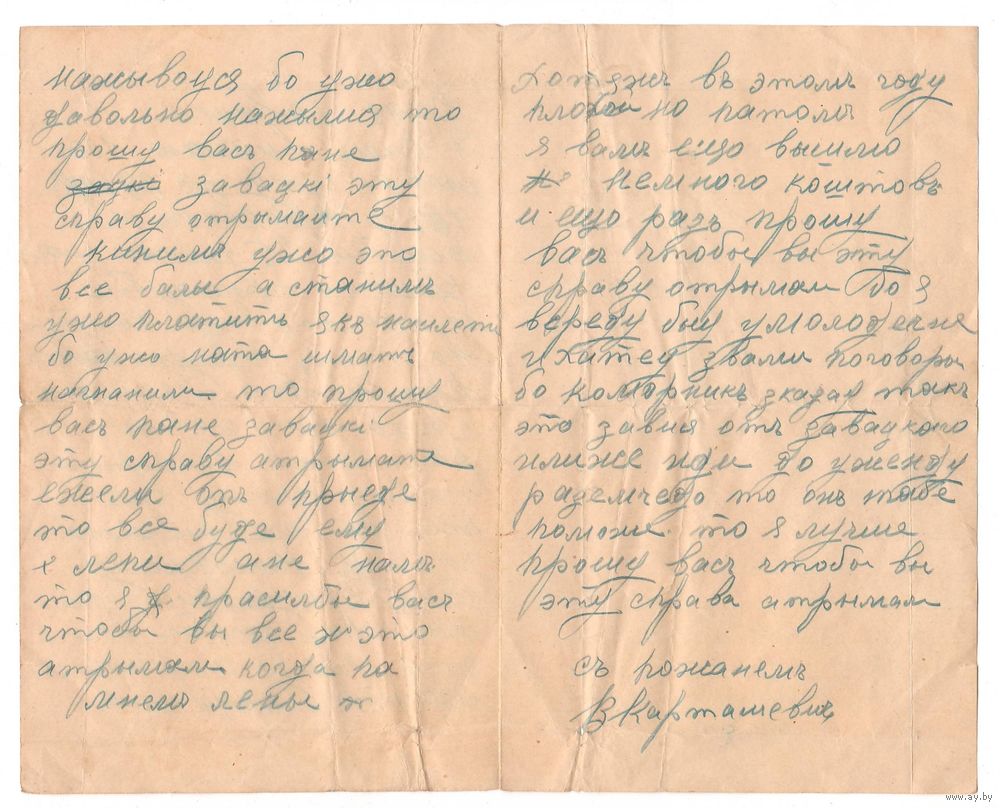 нажывоуся бо ужо
давольно нажылися то
прошу васъ пане
завадкі эту
справу отрымаите
кинимъ ужо это
все балы а станимъ
ужо платить якъ налети
бо ужо ната шматъ
нагнанили то прошу
васъ пане завадкі
эту справу атрымата
ежели онъ прыеде
то все буде ему
х лепи ане намъ
то я прасилбы васъ
чтобы вы все ж это
атрымали когда па
мнемъ лепы ж
Хотяжъ въ этомъ году
плохои но патомъ
я вамъ ещо вышлю
немного коштовъ
и ещо разъ прошу
васъ чтобы вы эту
справу отрымали бо я
вереду быу умолодечне
и хатеу звами поговоры
бо коморникъ зказау такъ
это завися отъ завадкого
илиже иди до уженду
раземчедо то онъ табе
поможи то я лучше
прошу васъ чтобы вы
эту справа атрымали
съ рожанемъ
В Карташевич
www.ay.by